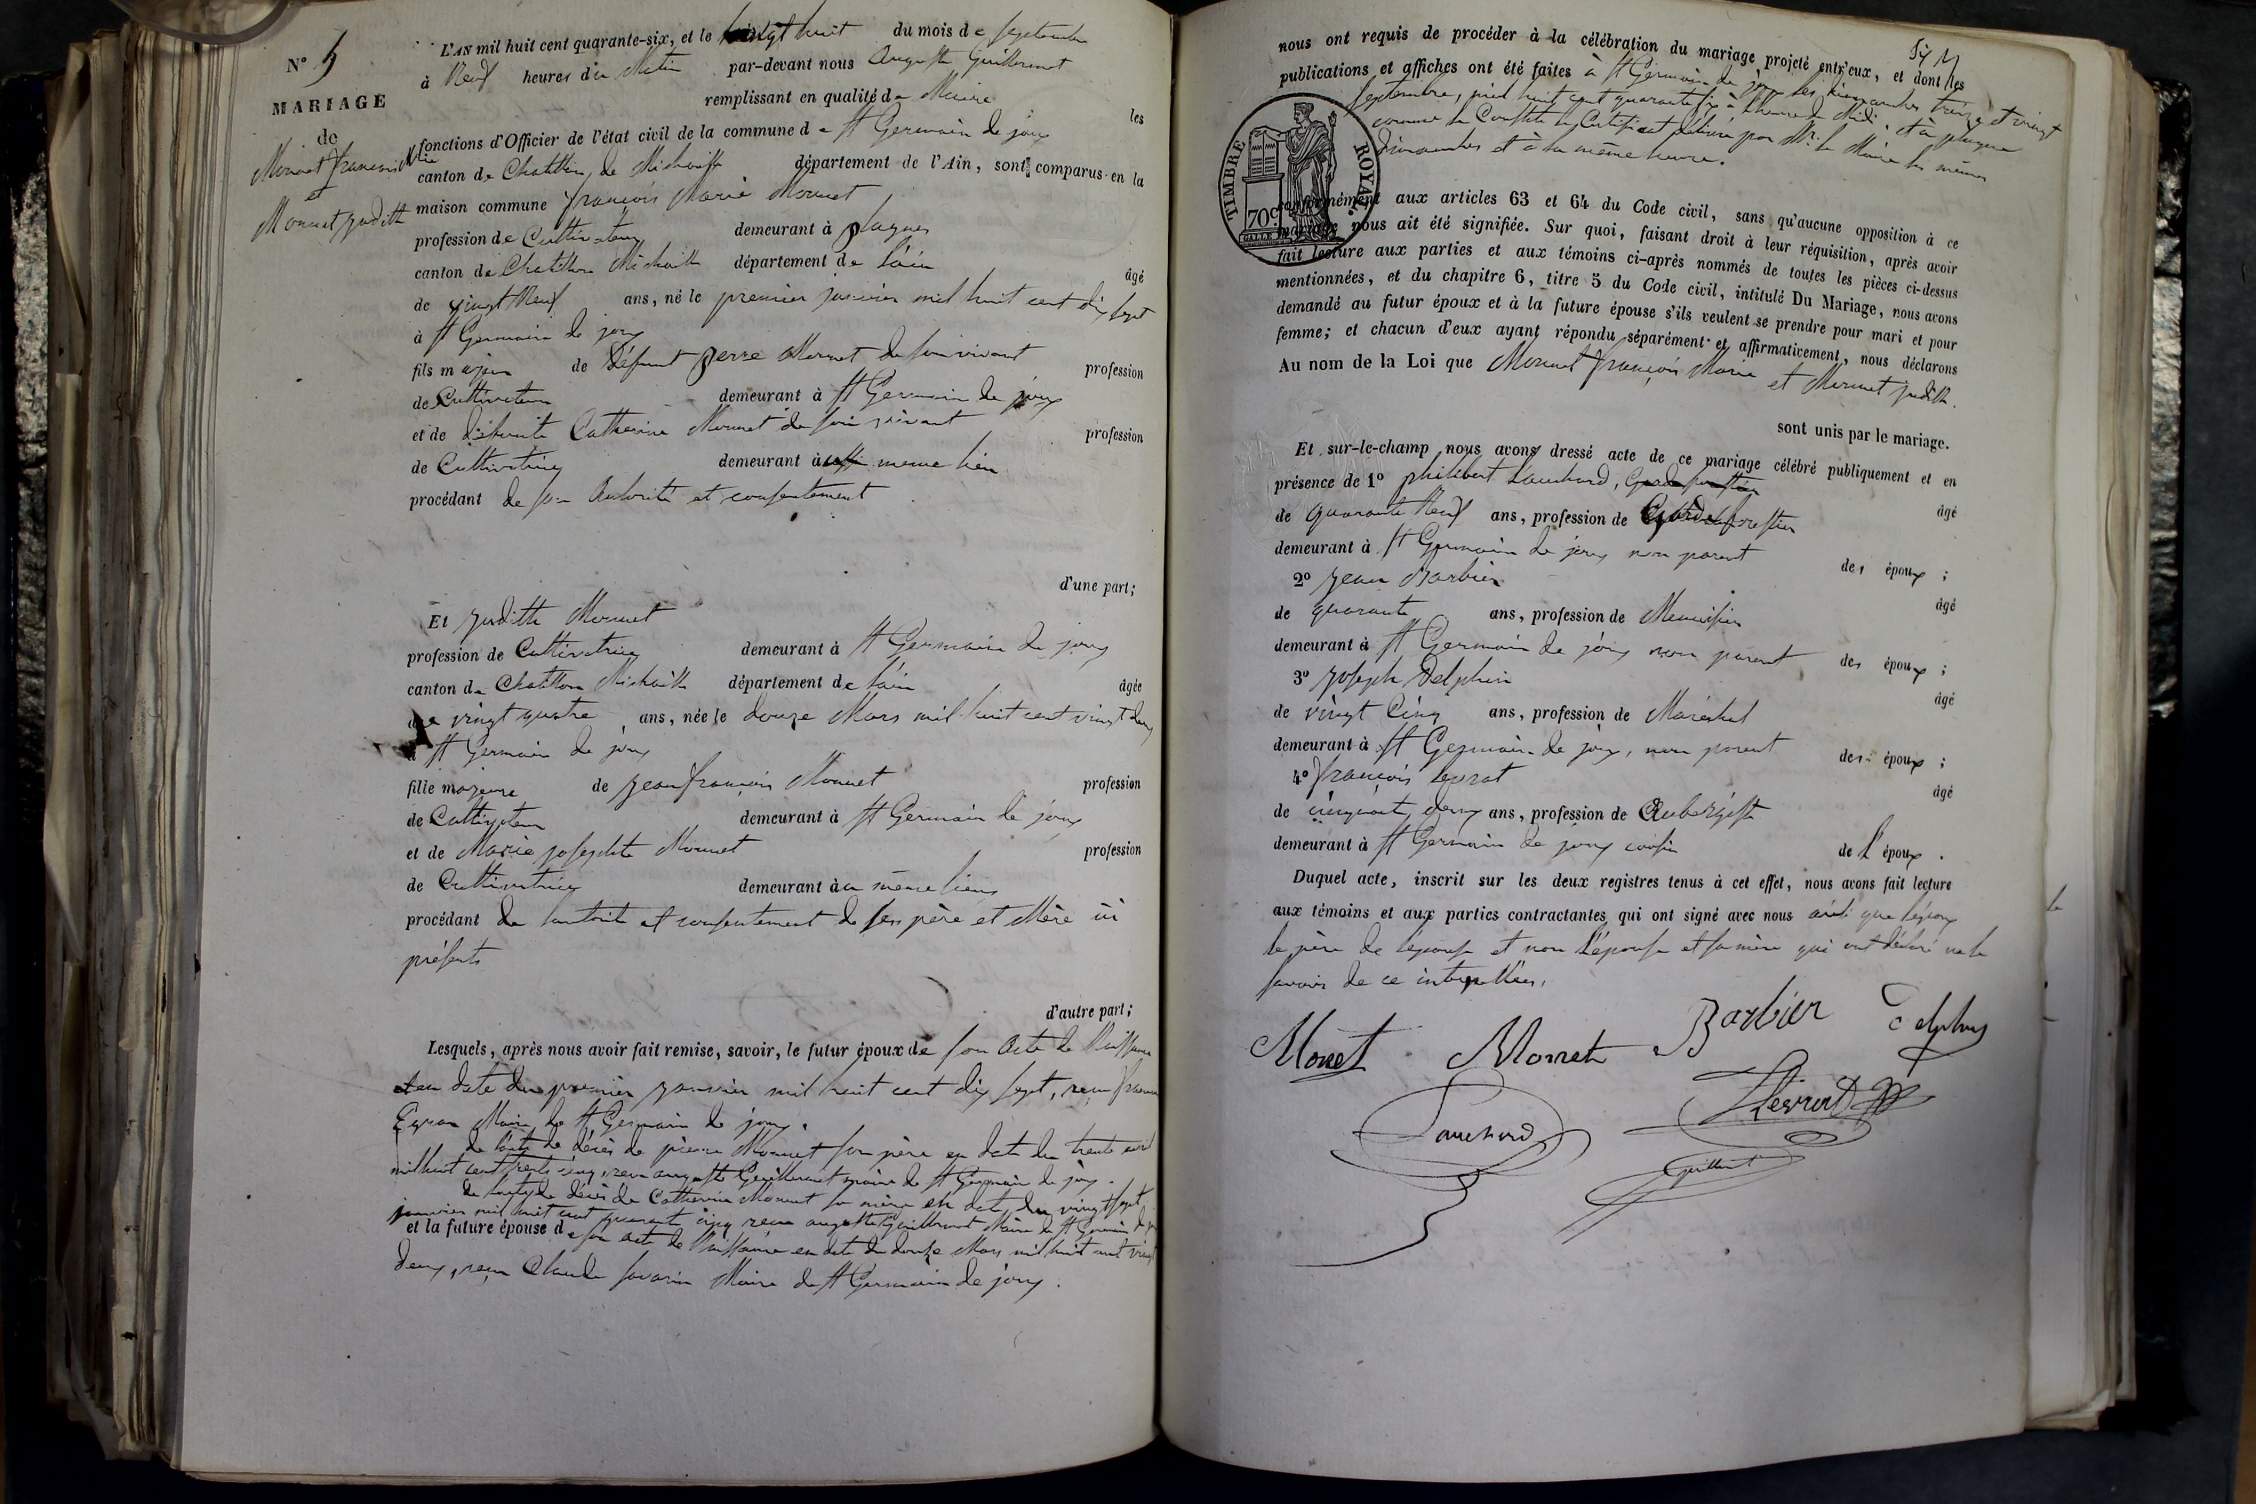 N° 5
MARIAGE
de
Monnet françois Mie
et
Monnet judith
L'AN mil huit cent quarante-six, et le vingt huit du mois de septembre
à Neuf heures du Matin par-devant nous Auguste Guillermet
remplissant en qualité de Maire les
fonctions d'Officier de l'état civil de la commune de St Germain de joux
canton de Chatillon de Michaille département de l'Ain, sont comparus en la
maison commune françois Marie Monnet
profession de Cultivateur demeurant à plagnes
canton de Chatillon Michaille département de l'ain âgé
de vingt Neuf ans, né le premier janvier mil huit cent dix sept
à St Germain de joux
fils majeur de Défunt pierre Monnet de son vivant profession
de Cultivateur demeurant à St Germain de joux
et de défunte Catherine Monnet de son vivant profession
de Cultivatrice demeurant à même lieu
procédant de son Autorité et consentement
d'une part;
Et judith Monnet
profession de Cultivatrice demeurant à St Germain de joux
canton de Chatillon Michaille département de l'ain âgée
de vingt quatre ans, née le douze Mars mil huit cent vingt deux
à St Germain de joux
fille majeure de jean françois Monnet profession
de Cultivateur demeurant à St Germain de joux
et de Marie josephte Monnet profession
de Cultivatrice demeurant au même lieu
procédant de l'autorité et consentement de ses père et Mère ici
présents
d'autre part;
Lesquels, après nous avoir fait remise, savoir, le futur époux de son Acte de Naissance
en date du premier janvier mil huit cent dix sept, reçu françois
Maire de St Germain de joux.
de l'acte de décès de pierre Monnet son père en date du trente avril
mil huit cent trente cinq, reçu auguste Guillermet maire de St Germain de joux.
de l'acte de décès de Catherine Monnet sa mère en date du vingt sept
janvier mil huit cent quarante cinq reçu auguste Guillermet Maire de St Germain de joux
et la future épouse de son acte de Naissance en date du douze Mars mil huit cent vingt
deux, reçu Claude savarin Maire de St Germain de joux.
nous ont requis de procéder à la célébration du mariage projeté entr'eux, et dont les
publications et affiches ont été faites à St Germain de joux les dimanches treize et vingt
septembre, mil huit cent quarante six à l'heure de Midi et à plagne
comme le Constate le Certificat délivré par Mr. le Maire les mêmes
dimanches et à la même heure.
TIMBRE ROYAL.
70c
conformément aux articles 63 et 64 du Code civil, sans qu'aucune opposition à ce
mariage nous ait été signifiée. Sur quoi, faisant droit à leur réquisition, après avoir
fait lecture aux parties et aux témoins ci-après nommés de toutes les pièces ci-dessus
mentionnées, et du chapitre 6, titre 5 du Code civil, intitulé Du Mariage, nous avons
demandé au futur époux et à la future épouse s'ils veulent se prendre pour mari et pour
femme; et chacun d'eux ayant répondu séparément et affirmativement, nous déclarons
Au nom de la Loi que Monnet françois Marie et Monnet judith.
sont unis par le mariage.
Et sur-le-champ nous avons dressé acte de ce mariage célébré publiquement et en
présence de 1° philibert Lauchard, Garde forestier âgé
de quarante Neuf ans, profession de Garde forestier
demeurant à St Germain de joux non parent des époux;
2° jean Barbier âgé
de quarante ans, profession de Menuisier
demeurant à St Germain de joux non parent des époux;
3° joseph Delphin âgé
de vingt Cinq ans, profession de Maréchal
demeurant à St Germain de joux, non parent des époux;
4° françois levrat âgé
de cinquante deux ans, profession de Aubergiste
demeurant à St Germain de joux cousin de l'époux.
Duquel acte, inscrit sur les deux registres tenus à cet effet, nous avons fait lecture
aux témoins et aux parties contractantes qui ont signé avec nous ainsi que l'époux
le père de l'épouse et non l'épouse et sa mère qui ont déclaré ne le
savoir de ce interpellées.
Monet Monnet Barbier Delphin
Lauchard Levrat
Guillermet